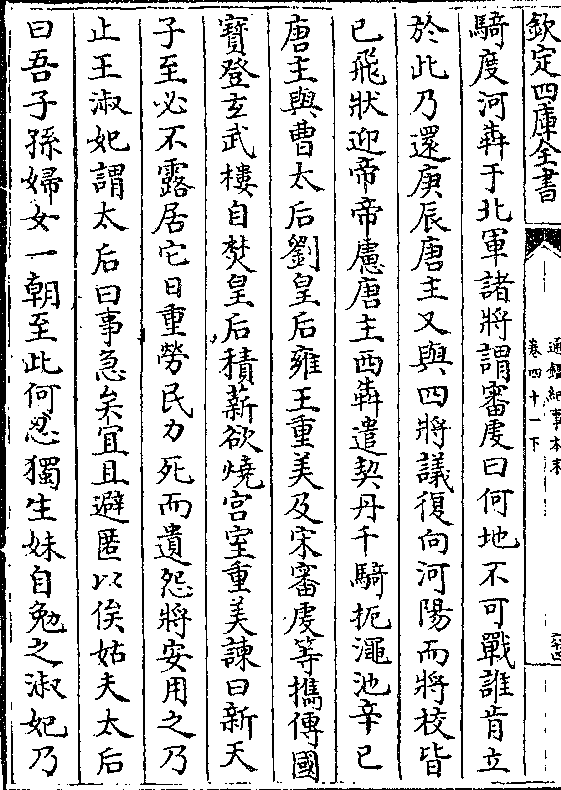 欽定四庫全書
通鑑紀事本末
卷四十一下
騎度河犇于北軍諸將謂審䖍曰何地不可戰誰肯立
於此乃還庚辰唐主又與四將議復向河陽而將校皆
已飛狀迎帝帝慮唐主西犇遣契丹千騎扼澠池辛巳
唐主與曹太后劉皇后雍王重美及宋審䖍等擕傳國
寳登玄武樓自焚皇后積薪欲燒宫室重美諫曰新天
子至必不露居它日重勞民力死而遺怨將安用之乃
止王淑妃謂太后曰事急矣宜且避匿以俟姑夫太后
曰吾子孫婦女一朝至此何忍獨生妹自勉之淑妃乃